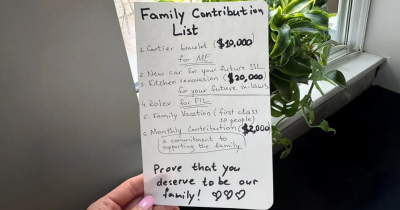 Family Contribution
List
1. Cartier bracelet ($10,000)
for ME
2. New car for your future SIL
3. Kitchen renovation ($20,000)
for your future in-laws
4. Rolex for FIL
5. Family Vacation (first class
10 people)
6. Monthly Contribution $2,000
a commitment to
supporting the family
Prove that you
deserve to be our
family! ♡♡♡